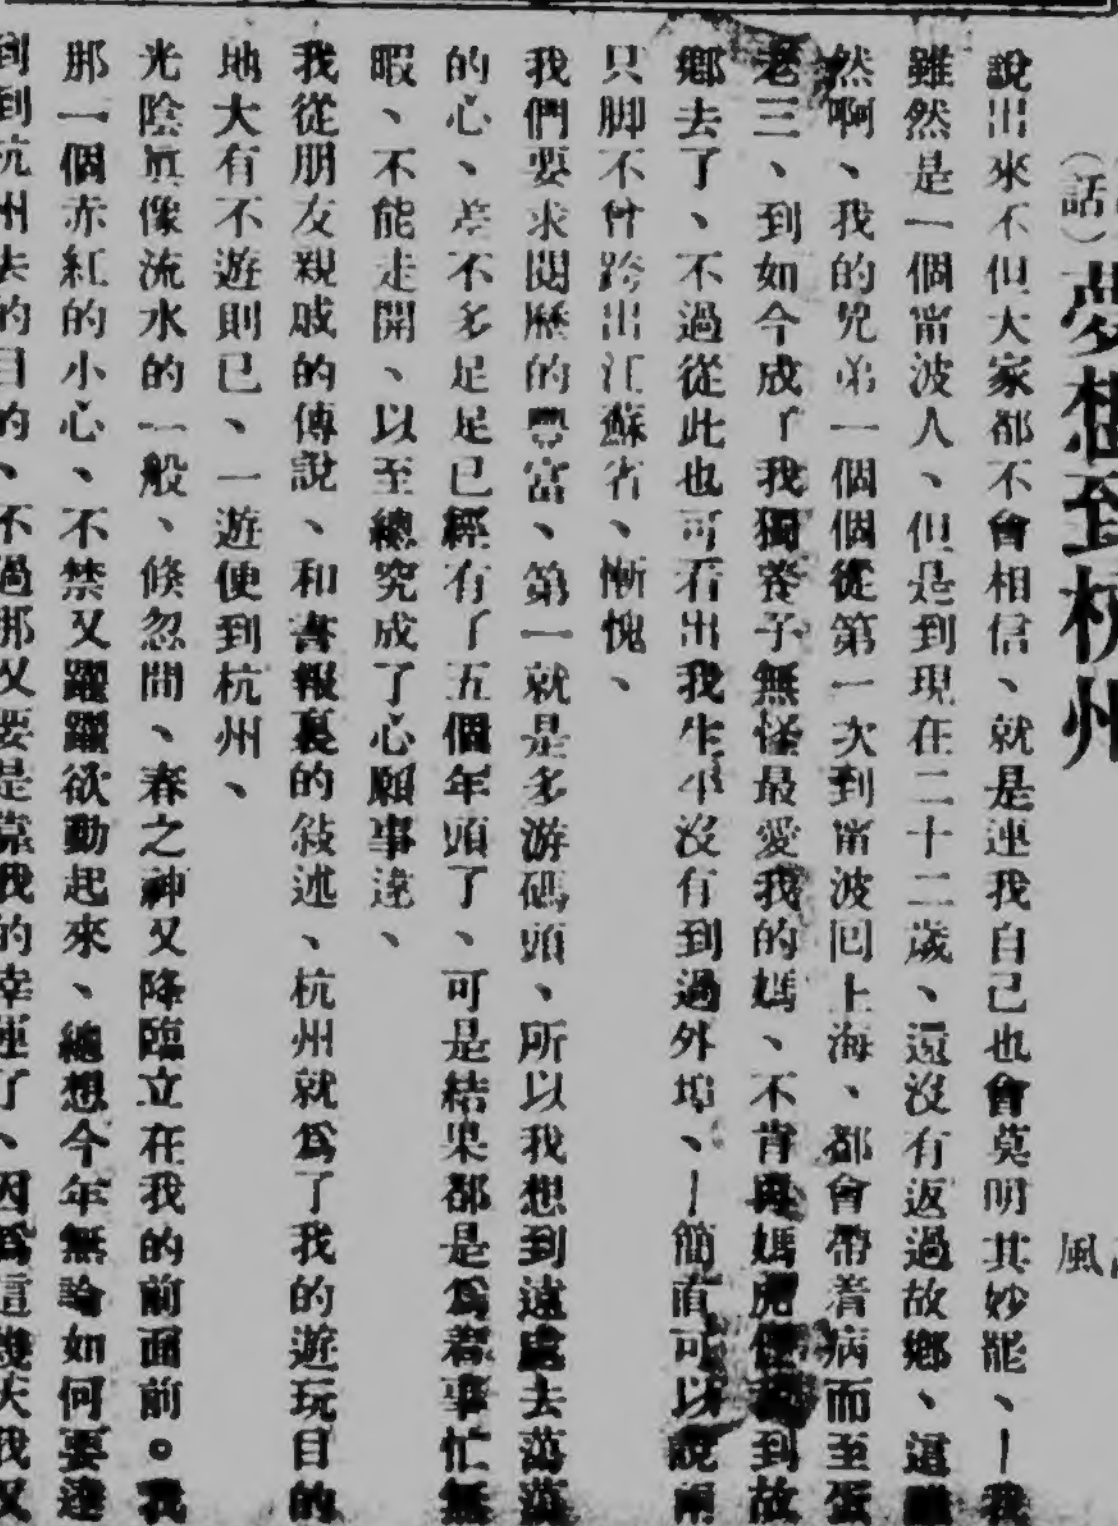 （話）夢想到杭州
風
說出來不但大家都不會相信、就是連我自己也會莫明其妙罷、—我
雖然是一個甯波人、但是到現在二十二歲、還沒有返過故鄉、這雖
然啊、我的兄弟一個個從第一次到甯波回上海、都會帶着病而至
老三、到如今成了我獨養子無怪最愛我的媽、不肯再媽虎使我到故
鄉去了、不過從此也可看出我生平沒有到過外埠、—簡直可以說兩
只脚不曾跨出江蘇省、慚愧、
我們要求閱歷的豐富、第一就是多游碼頭、所以我想到遠處去蕩蕩
的心、差不多足足已經有了五個年頭了、可是結果都是為着事忙無
暇、不能走開、以至總究成了心願事違、
我從朋友親戚的傳說、和書報裏的敍述、杭州就爲了我的遊玩目的
地大有不遊則已、一遊便到杭州、
光陰眞像流水的一般、倏忽間、春之神又降臨立在我的前面前。我
那一個赤紅的小心、不禁又躍躍欲動起來、總想今年無論如何要達
到到杭州去的目的、不過那又要是靠我的幸運了、因爲這幾天我又